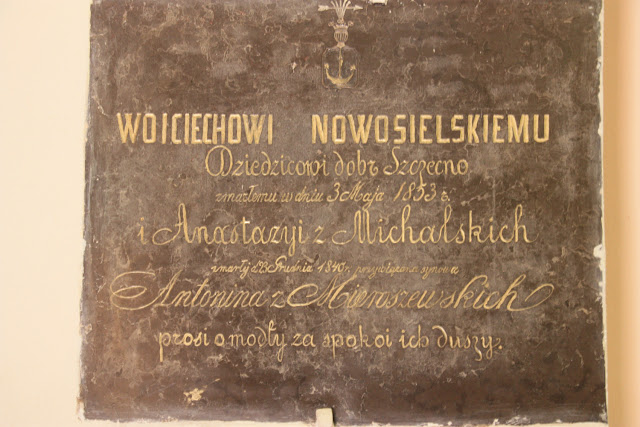 WOJCIECHOWI NOWOSIELSKIEMU
Dziedzicowi dobr Szczecno
zmarłemu w dniu 3 Maja 1853 r.
i Anastazyi z Michalskich
zmarłej d. Grudnia 1840 r. przywiązana synowa
Antonina z Mieroszewskich
prosi o modły za spokoi ich duszy.